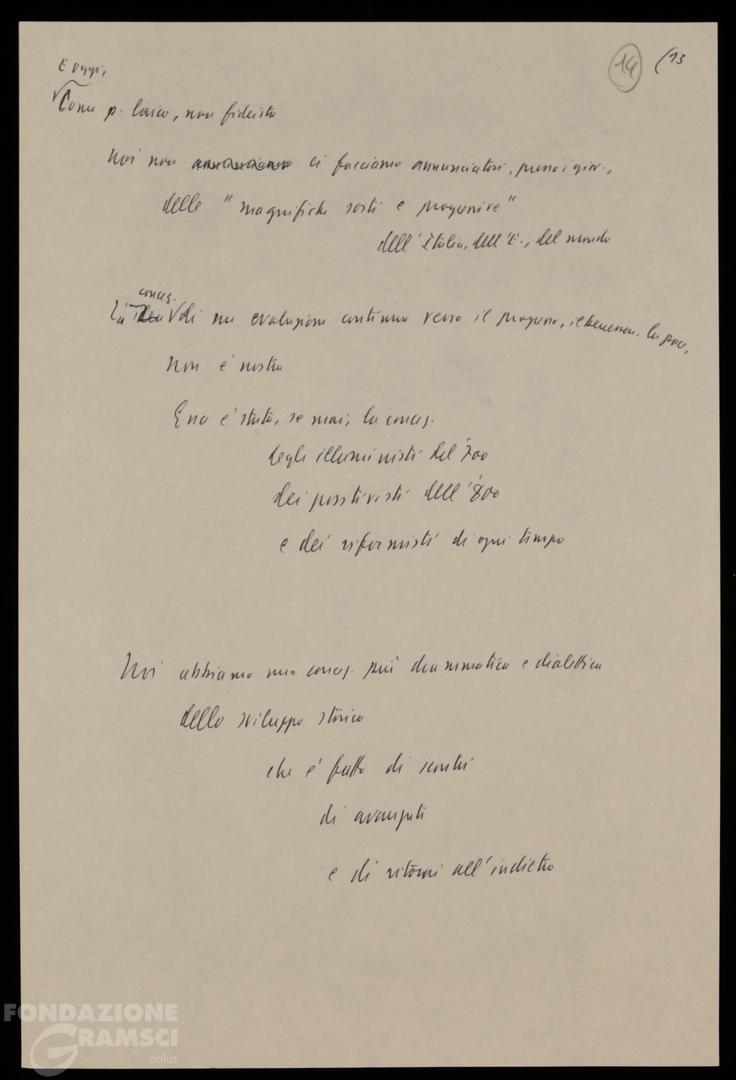 E oggi,
14 (13
Come p. laico, non fideista
Noi non annunciamo ci facciamo annunciatori, presso i giov.,
delle "magnifiche sorti e progressive"
dell'Italia, dell'E., del mondo
concez.
La idea di una evoluzione continua verso il progresso, il benessere, la pace,
non è nostra
Essa è stata, se mai, la concez.
degli illuministi del '700
dei positivisti dell'800
e dei riformisti di ogni tempo
Noi abbiamo una concez. più drammatica e dialettica
dello sviluppo storico
che è fatto di scontri
di avanzate
e di ritorni all'indietro
FONDAZIONE
GRAMSCI
onlus